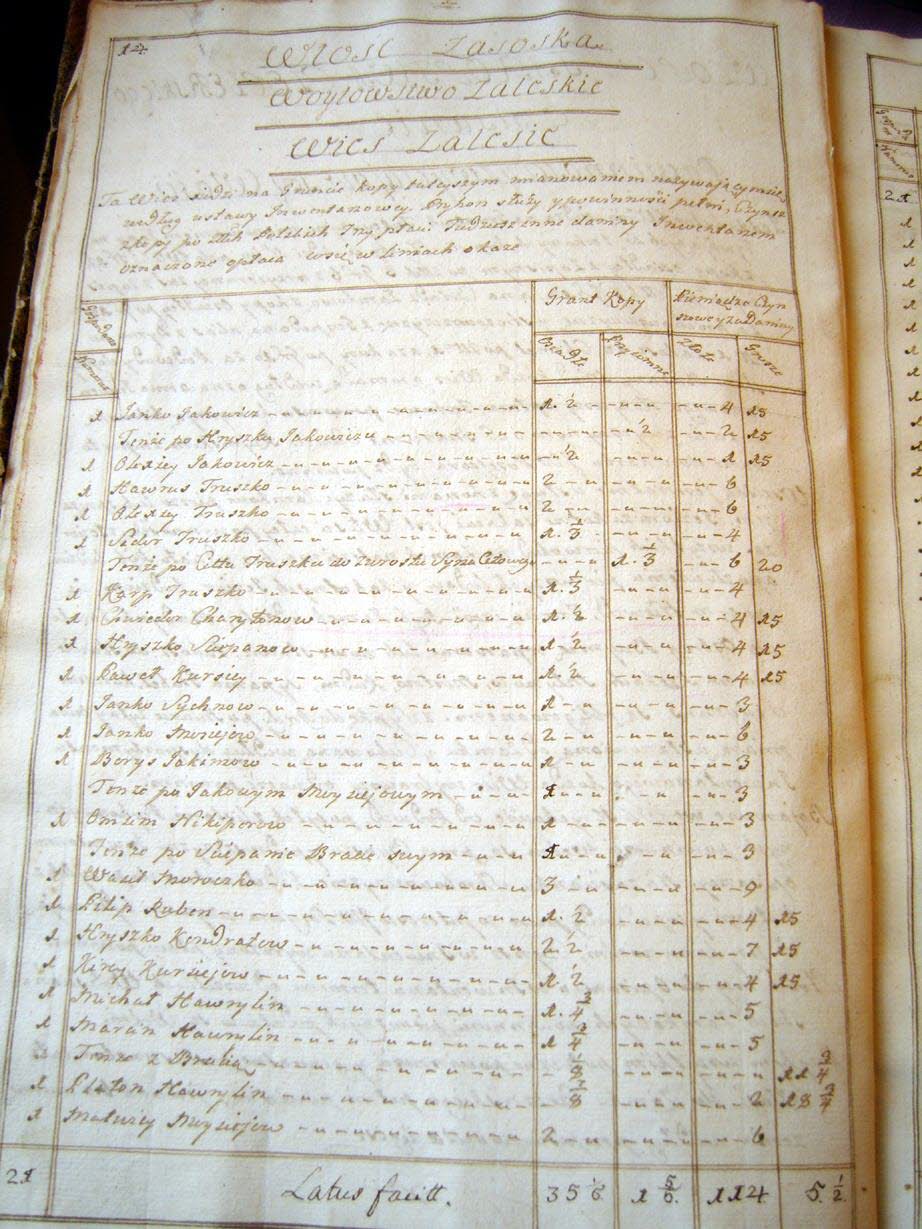 14.
Włość Zasoska
Woytowstwo Zaleskie
Wieś Zalesie
Ta Wieś siedzi na Gruncie kopy tuteyszym mianowaniem nazywającym się
według ustawy Inwentarzowey. służy y powinność pełni, Czynsz
z kopy po złłch Polskich Trzy płaci. Tudzież inne daniny Inwentarzem
oznaczone opłaca wsię w liniach okaże
Grunt Kopy Pieniądze Czyn
szowe y za Daniny
Ciągłe Przyimne Złote Grosze
1 Janko Jakowicz 1. ½ 4 15
Tenże po Hryszku Jakowiczu ½ 2 15
1 Olexiey Jakowicz ½ 1 15
1 Hawrus Truszko 2 6
1 Olexiey Truszko 2 6
1 Sedor Truszko 1. ⅓ 4
Tenże po Truszku do zurostu Syna 1. ⅓ 6 20
1 Karp Truszko 1. ⅓ 4
1 Chwiedor Charytonow 1. ½ 4 15
1 Hryszko Sciepanow 1. ½ 4 15
1 Paweł Kursiey 1. ½ 4 15
1 Janko Sychnow 1 3
1 Janko Moysiejow 2 6
1 Borys Jakimow 1 3
Tenże po Jakowym Moysiejowym 1 3
1 Nikiporow 1 3
Tenże po Sciepanie Bracie swym 1 3
1 Wasil Moroczko 3 9
1 Pilip Ruben 1. ½ 4 15
1 Hryszko Kondratow 2 ½ 7 15
1 Kursiejow 1 ½ 4 15
1 Michał Hawrylin 1. ¾ 5
1 Hawrylin 1 ¾ 5
Tenże z Bratią ⅛ 11 ¾
1 Platon Hawrylin ⅞ 2 18 ¾
1 Matwiey Moysiejow 2 6
21 Latus facitt. 35 ⅙ 1 ⅚ 114 5. ½